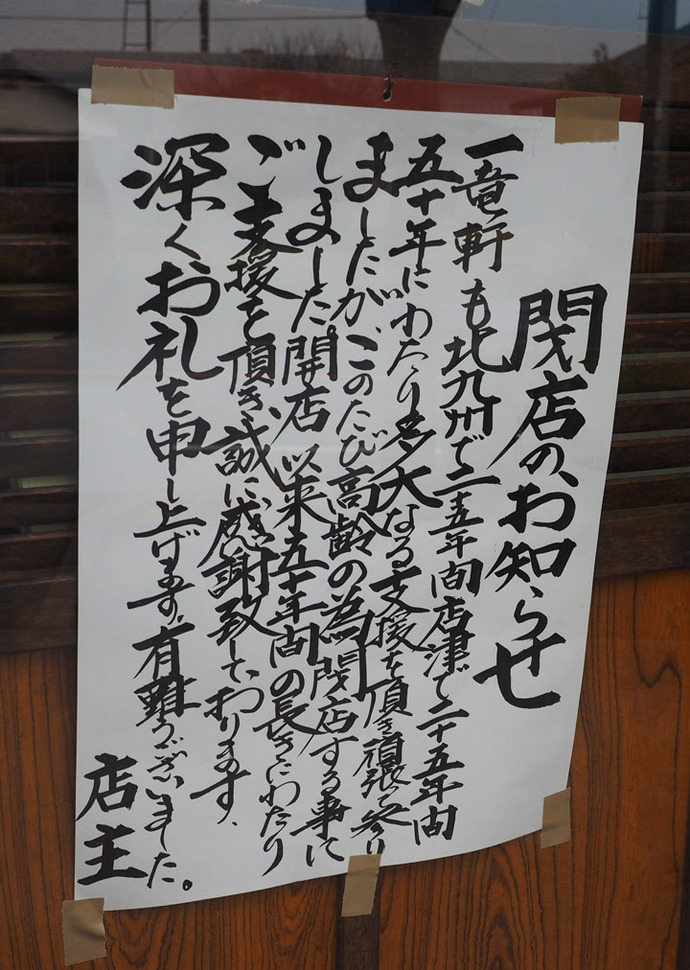 閉店の、お知らせ
一竜軒も北九州で二十五年間唐津で二十五年間
五十年にわたり多大なる支援を頂き頑張って参り
ましたが、このたび高齢の為閉店する事に
しました。開店以来五十年間の長きにわたり
ご支援を頂き、誠に感謝致しております、
深くお礼を申し上げます、有難うございました。
店主